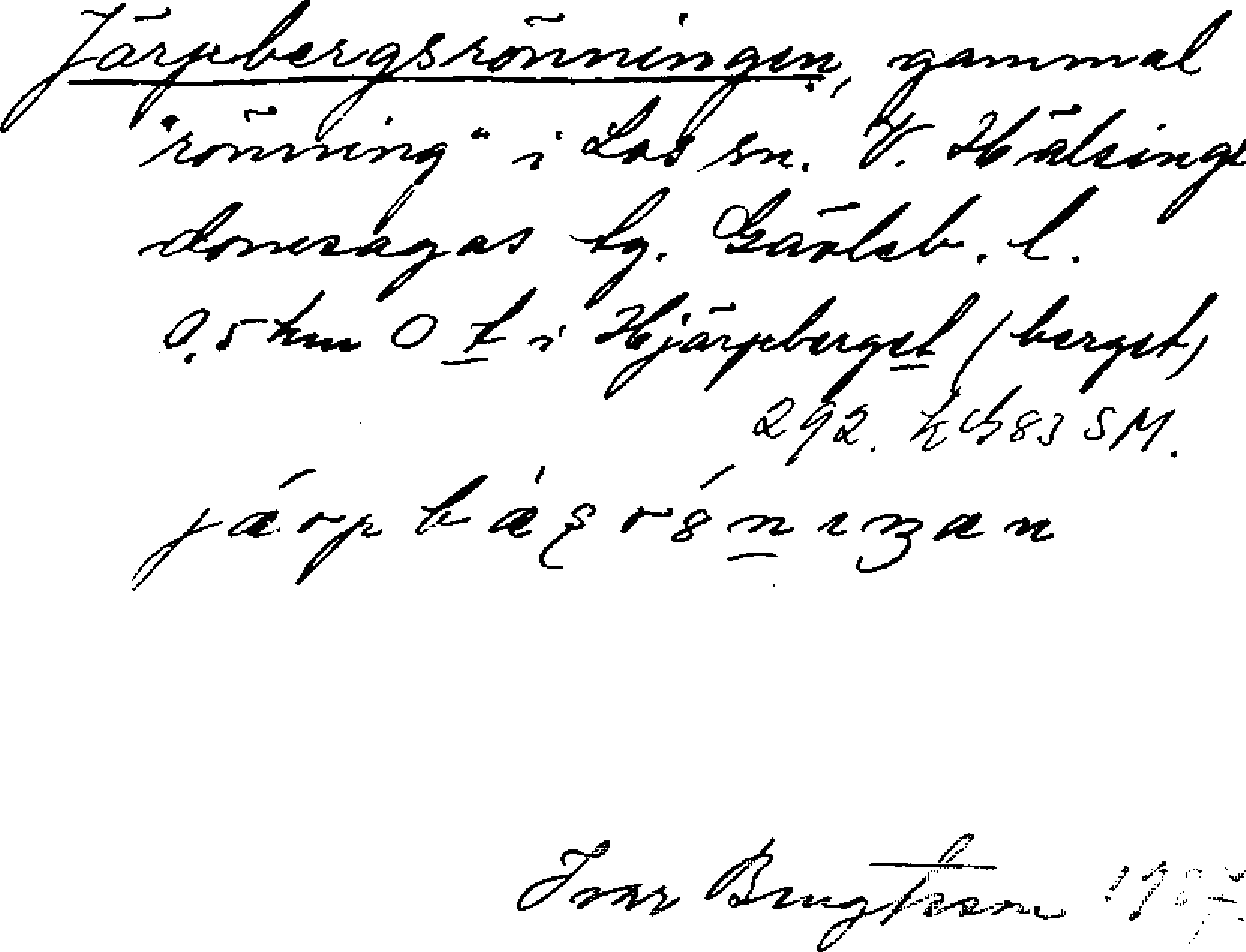 Järpbergsrönningen, gammal
"rönning" i Los sn. V. Hälsing
domsagas tg. Gävleb. l.
0,5 km O t i Hjärpberget (berget)
292. SM.
Ivar Bengtsson